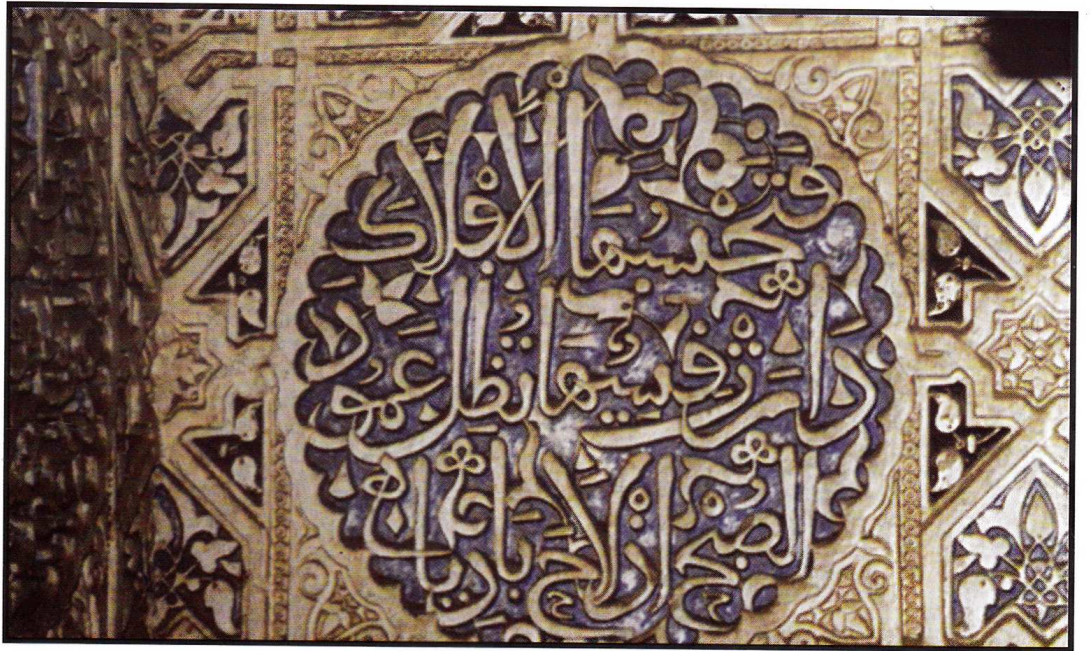 وتحسبها الافلاك
دارت قسيها تظل عمود
الصبح اذ لاح باديا